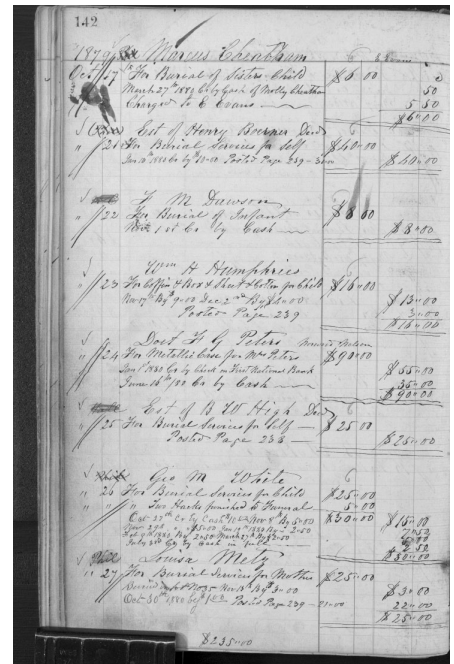 142
1879 Marcus Cheatham
Oct 17 For Burial of Sisters Child $6 00
March 27th 1880 Cr by Cash of Molly Cheatham 50
Charged to C Evans 5 50
$6"00
Est of Henry Boerner Decd
" 21 For Burial Services for Self $40"00
Posted Page 239 $40"00
F M Dawson
" 22 For Burial of Infant $8 00
1st Cr by Cash $8"00
Wm H Humphries
" 23 For Coffin & Box & for Child $16"00
Nov 17th By $9"00 Dec 2nd By $4"00 $13"00
Posted Page 239 3"00
$16"00
Doct F G Peters
" 24 For Metallic Case for Mrs Peters $90"00
Jany 1880 Cr by Check on First National Bank $55"00
June 15th 1880 Cr by Cash 35"00
$90"00
Est of B W High Decd
" 25 For Burial Services for Self $25 00
Posted Page 238 $25"00
Geo M White
" 26 For Burial Services for Child $25"00
" " Two Hacks furnished to Funeral 5"00
$30"00 $15"00
$30"00
Louisa Metz
" 27 For Burial Services for Mother $25"00
$3"00
Oct 30th 1880 Posted Page 239 22"00
$25"00
$235"00